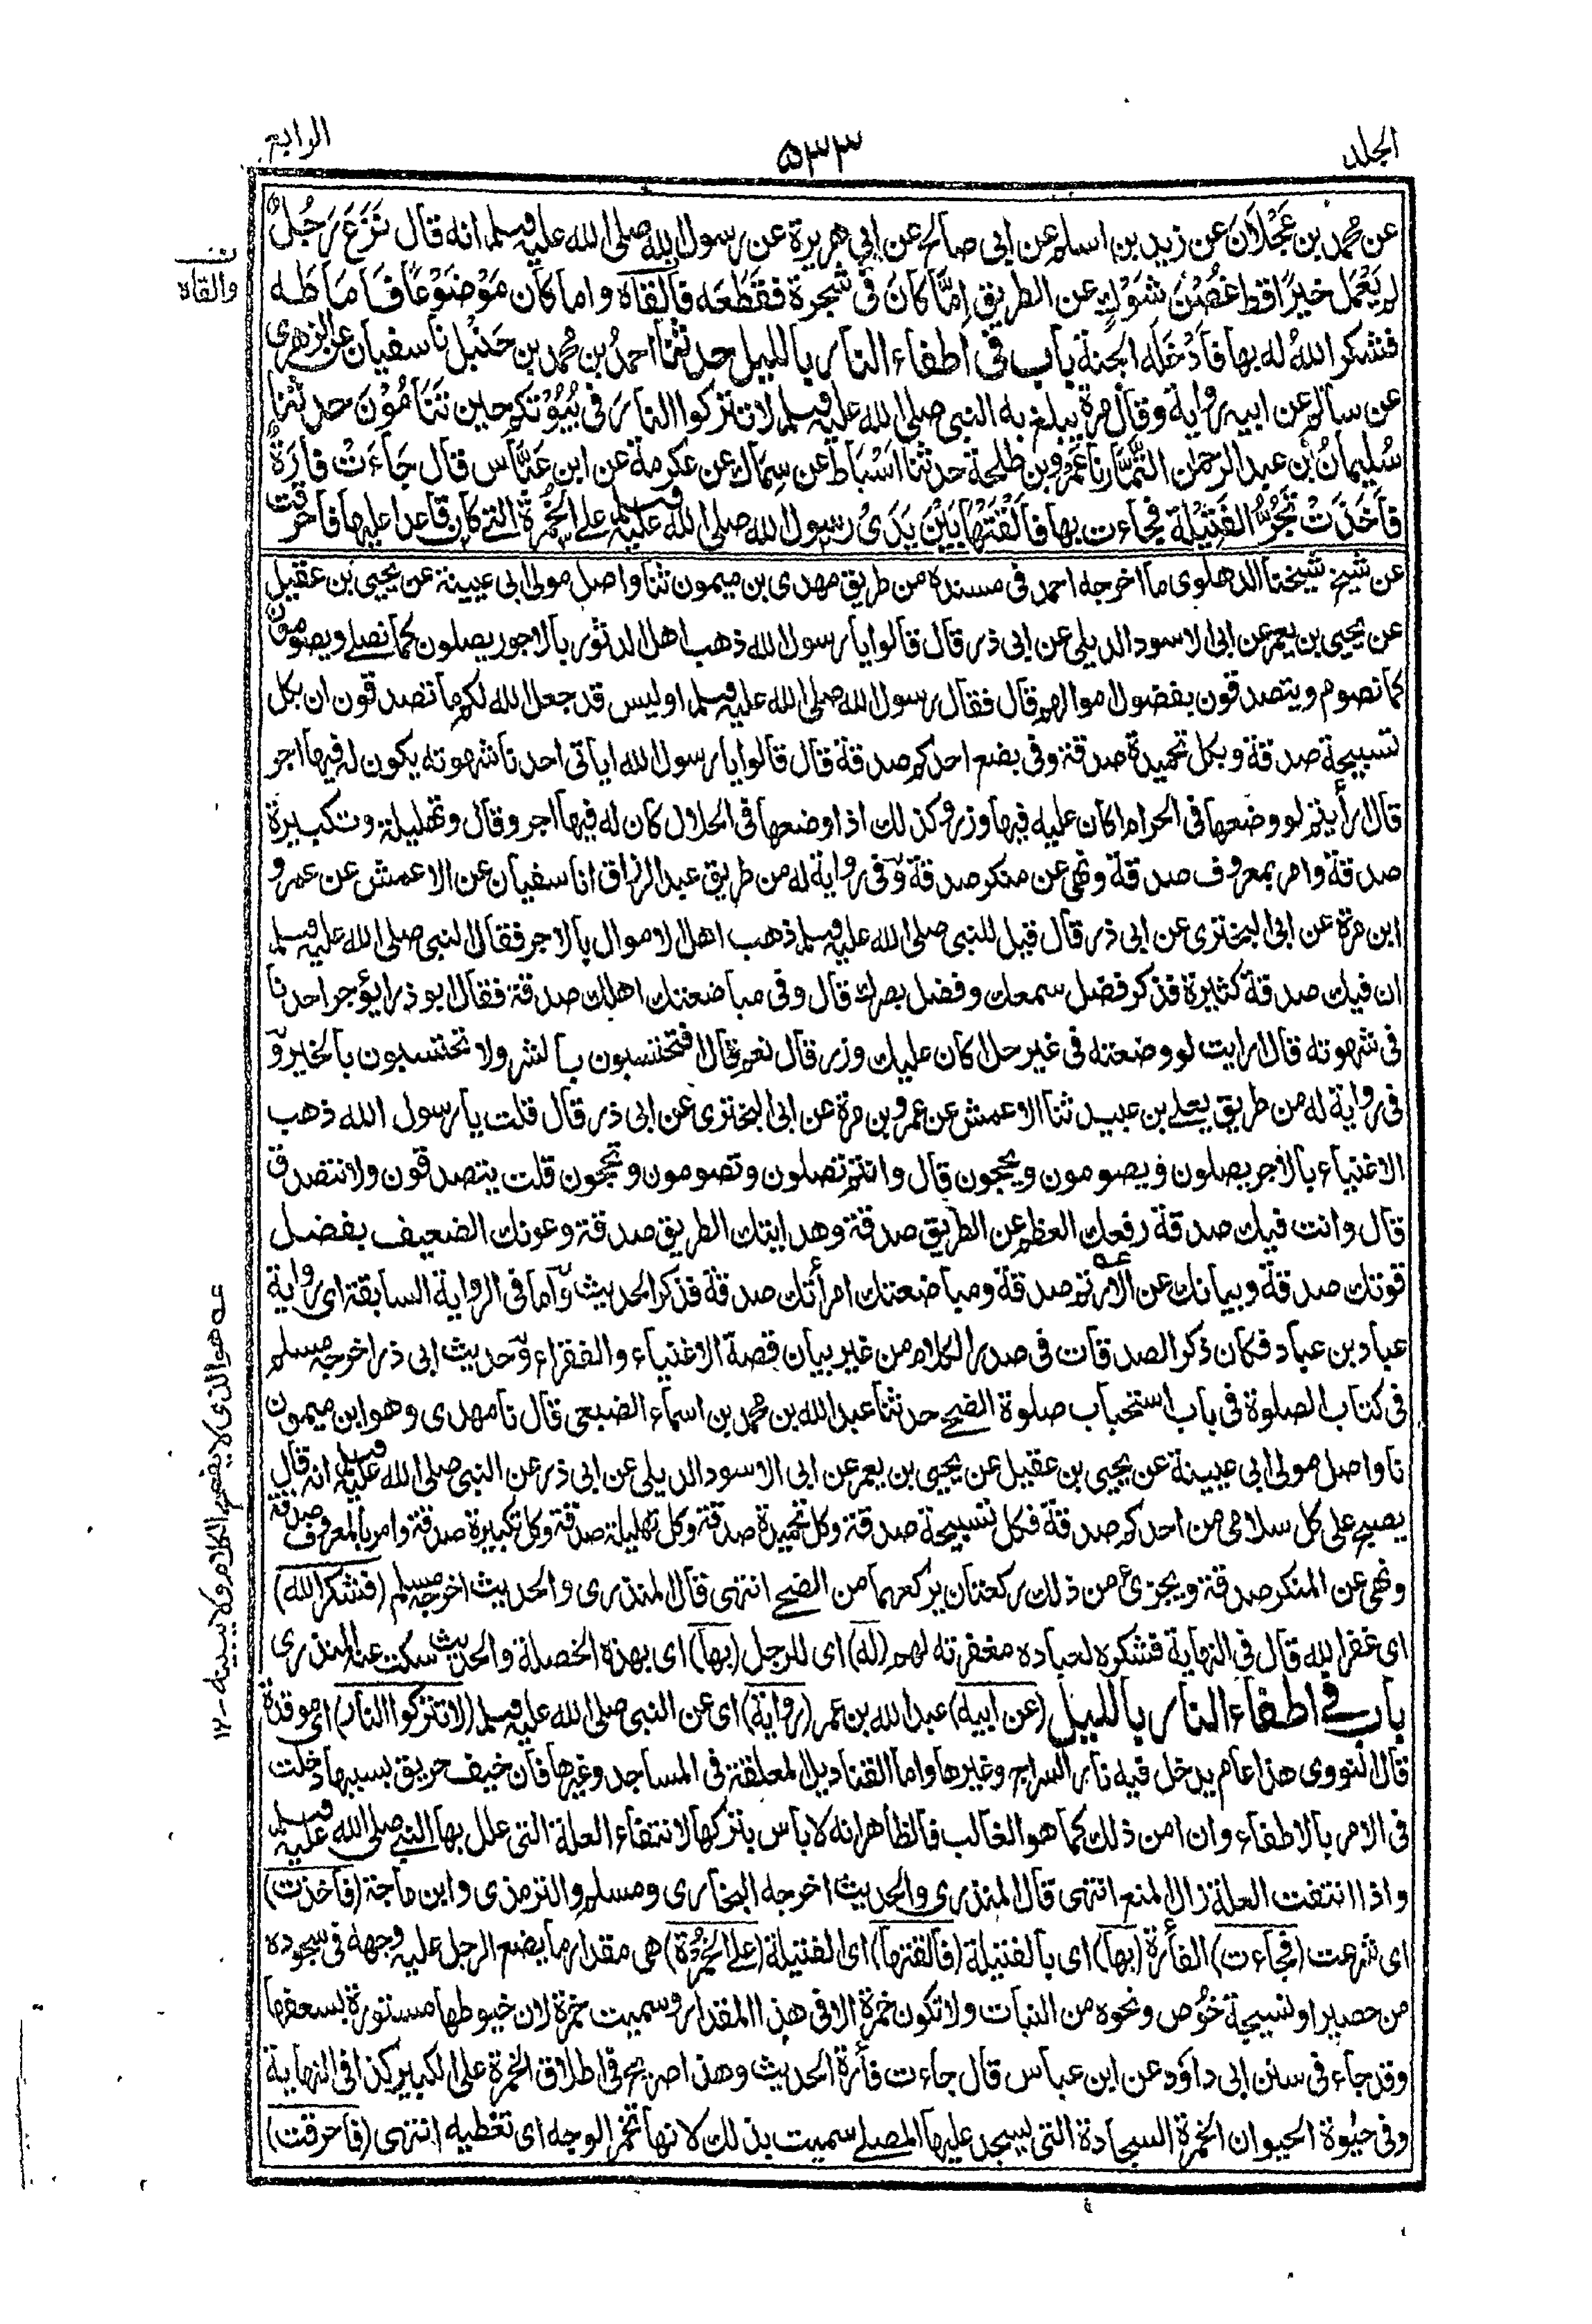 الجلد
۵۳۳
الرابع
عن محمد بن عَجْلَانَ عن زيد بن اسلم عن ابى صالح عن ابى هريرة عن رسول الله صلى الله عليه وسلم انه قال نَزَعَ رَجُلٌ
لم يَعْمَل خيرًا قط غُصْنَ شَوْكٍ عن الطريق اِمَّا كانَ فى شجرة فقَطَعَه فالقاه واما كان مَوْضُوْعًا فَاَمَاطَه
فشكر اللهُ له بها فاَدْخَلَه الجنة باب فى اطفاء النار بالليل حدثنا احمدُ بن محمد بن حَنْبَل نا سفيان عن الزهرى
عن سالم عن ابيه رواية وقال مرة يبلغ به النبى صلى الله عليه وسلم لا تتركوا النارَ فى بُيُوْتكم حين تَنَامُوْنَ حدثنا
سُليمانُ بن عبد الرحمن التَّمَّارُ نا عَمْرو بن طلحة حدثنا اَسْبَاط عن سِمَاك عن عكرمة عن ابن عَبَّاس قال جَاءَتْ فارَةٌ
فاَخَذَتْ تَجُرُّ الفَتِيْلَة فجاءت بها فاَلْقَتْهَا بَيْنَ يَدَىْ رسول الله صلى الله عليه وسلم على الخُمْرة التى كان قاعدا عليها فاحرقت
عن شيخ شيخنا الدهلوى ما اخرجه احمد فى مسنده من طريق مهدى بن ميمون ثنا واصل مولى ابى عيينة عن يحيى بن عقيل
عن يحيى بن يعمر عن ابى الاسود الديلى عن ابى ذر قال قالوا يا رسول الله ذهب اهل الدثور بالاجور يصلون كما نصلى ويصومون
كما نصوم ويتصدقون بفضول اموالهم قال فقال رسول الله صلى الله عليه وسلم اوليس قد جعل الله لكم ما تصدقون ان بكل
تسبيحة صدقة وبكل تحميدة صدقة وفى بضع احدكم صدقة قال قالوا يا رسول الله اياتى احدنا شهوته يكون له فيها اجر
قال ارأيتم لو وضعها فى الحرام اكان عليه فيها وزر وكذلك اذا وضعها فى الحلال كان له فيها اجر وقال وتهليلة وتكبيرة
صدقة وامر بمعروف صدقة ونهى عن منكر صدقة وفى رواية له من طريق عبد الرزاق انا سفيان عن الاعمش عن عمرو
ابن مرة عن ابى البخترى عن ابى ذر قال قيل للنبى صلى الله عليه وسلم ذهب اهل الاموال بالاجر فقال النبى صلى الله عليه وسلم
ان فيك صدقة كثيرة فذكر فضل سمعك وفضل بصرك قال وفى مباضعتك اهلك صدقة فقال ابو ذر ايؤجر احدنا
فى شهوته قال ارايت لو وضعته فى غير حل اكان عليك وزر قال نعم قال افتحتسبون بالشر ولا تحتسبون بالخير و
فى رواية له من طريق يعلى بن عبيد ثنا الاعمش عن عمرو بن مرة عن ابى البخترى عن ابى ذر قال قلت يا رسول الله ذهب
الاغنياء بالاجر يصلون ويصومون ويحجون قال وانتم تصلون وتصومون وتحجون قلت يتصدقون ولا نتصدق
قال وانت فيك صدقة رفعك العظم عن الطريق صدقة وهدايتك الطريق صدقة وعونك الضعيف بفضل
قوتك صدقة وبيانك عن الارتم صدقة ومباضعتك امرأتك صدقة فذكر الحديث واما فى الرواية السابقة اى رواية
عباد بن عباد فكان ذكر الصدقات فى صدر الكلام من غير بيان قصة الاغنياء والفقراء وحديث ابى ذر اخرجه مسلم
فى كتاب الصلوة فى باب استحباب صلوة الضحى حدثنا عبد الله بن محمد بن اسماء الضبعى قال نا مهدى وهو ابن ميمون
نا واصل مولى ابى عيينة عن يحيى بن عقيل عن يحيى بن يعمر عن ابى الاسود الديلى عن ابى ذر عن النبى صلى الله عليه وسلم انه قال
يصبح على كل سلامى من احدكم صدقة فكل تسبيحة صدقة وكل تحميدة صدقة وكل تهليلة صدقة وكل تكبيرة صدقة وامر بالمعروف صدقة
ونهى عن المنكر صدقة ويجزئ من ذلك ركعتان يركعهما من الضحى انتهى قال المنذرى والحديث اخرجه مسلم (فشكر الله)
اى غفر الله قال فى النهاية فشكره لعباده مغفرته لهم (له) اى للرجل (بها) اى بهذه الخصلة والحديث سكت عنه المنذرى
باب فى اطفاء النار بالليل (عن ابيه) عبد الله بن عمر (رواية) اى عن النبى صلى الله عليه وسلم (لا تتركوا النار) اى موقدة
قال النووى هذا عام يدخل فيه نار السراج وغيرها واما القناديل المعلقة فى المساجد وغيرها فان خيف حريق بسببها دخلت
فى الامر بالاطفاء وان امن ذلك كما هو الغالب فالظاهر انه لا باس بتركها لانتفاء العلة التى علل بها النبى صلى الله عليه وسلم
واذا انتفت العلة زال المنع انتهى قال المنذرى والحديث اخرجه البخارى ومسلم والترمذى وابن ماجة (فاخذت)
اى شرعت (فجاءت) الفأرة (بها) اى بالفتيلة (فالقتها) اى الفتيلة (على الخُمْرَة) هى مقدار ما يضع الرجل عليه وجهه فى سجوده
من حصير او نسيجة خُوْص ونحوه من النبات ولا تكون خمرة الا فى هذا المقدار وسميت خمرة لان خيوطها مستورة بسعفها
وقد جاء فى سنن ابى داؤد عن ابن عباس قال جاءت فأرة الحديث وهذا صريح فى اطلاق الخمرة على الكبير كذا فى النهاية
وفى حيٰوة الحيوان الخمرة السجادة التى يسجد عليها المصلى سميت بذلك لانها تخمر الوجه اى تغطيه انتهى (فاحرقت)
والقاه
عه هو الذى لا يفصح الكلام ولا يبينه - ۱۲